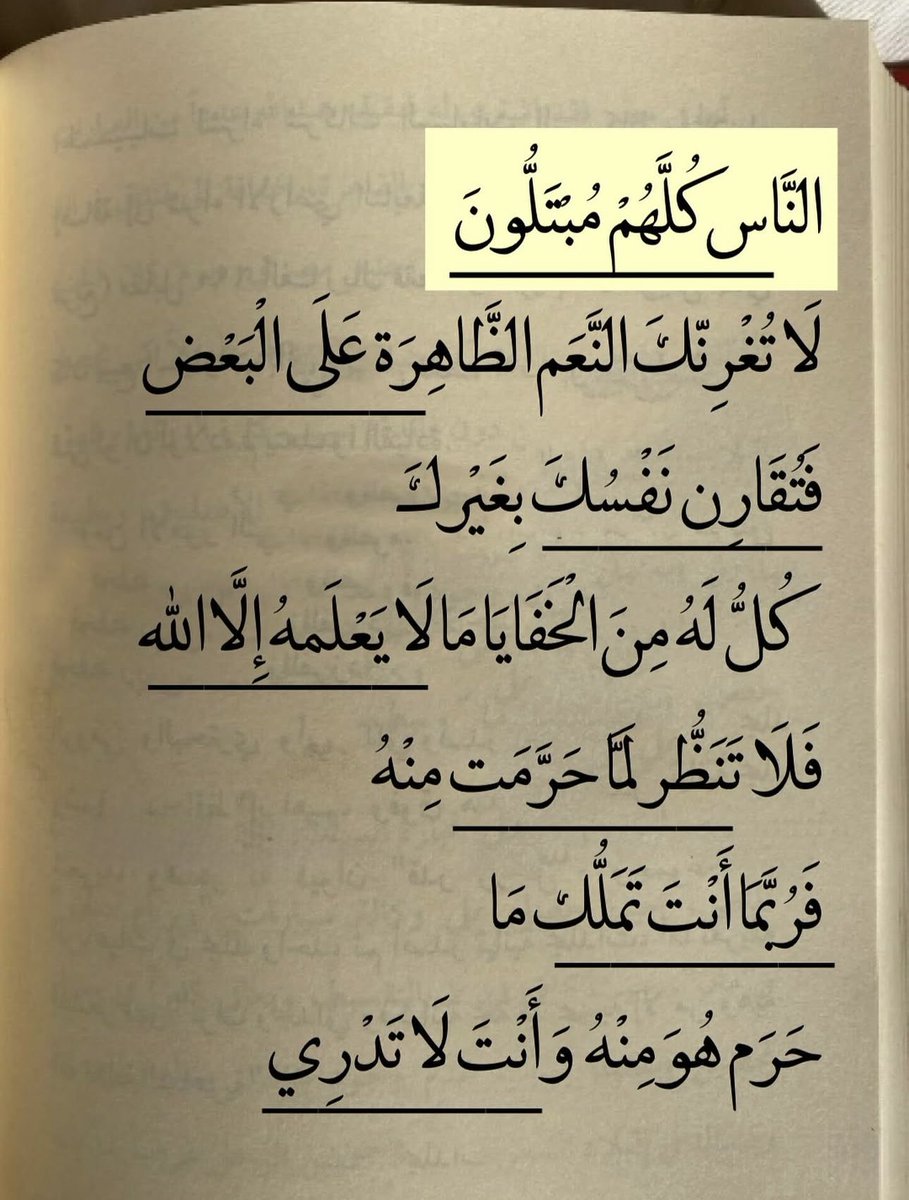 النَّاس كُلَّهُمْ مُبْتَلُّونَ
لَا تُغْرِنّكَ النَّعَم الظَّاهِرَة عَلَى الْبَعْض
فَتُقَارِن نَفْسُكَ بِغَيْرِكَ
كُلُّ لَهُ مِنَ الْخَفَايَا مَا لَا يَعْلَمهُ إِلَّا الله
فَلَا تَنَظُّر لَمَّا حَرَّمَت مِنْهُ
فَرُبَّمَا أَنْتَ تَمَلُّك مَا
حَرَم هُوَ مِنْهُ وَأَنْتَ لَا تَدْرِي